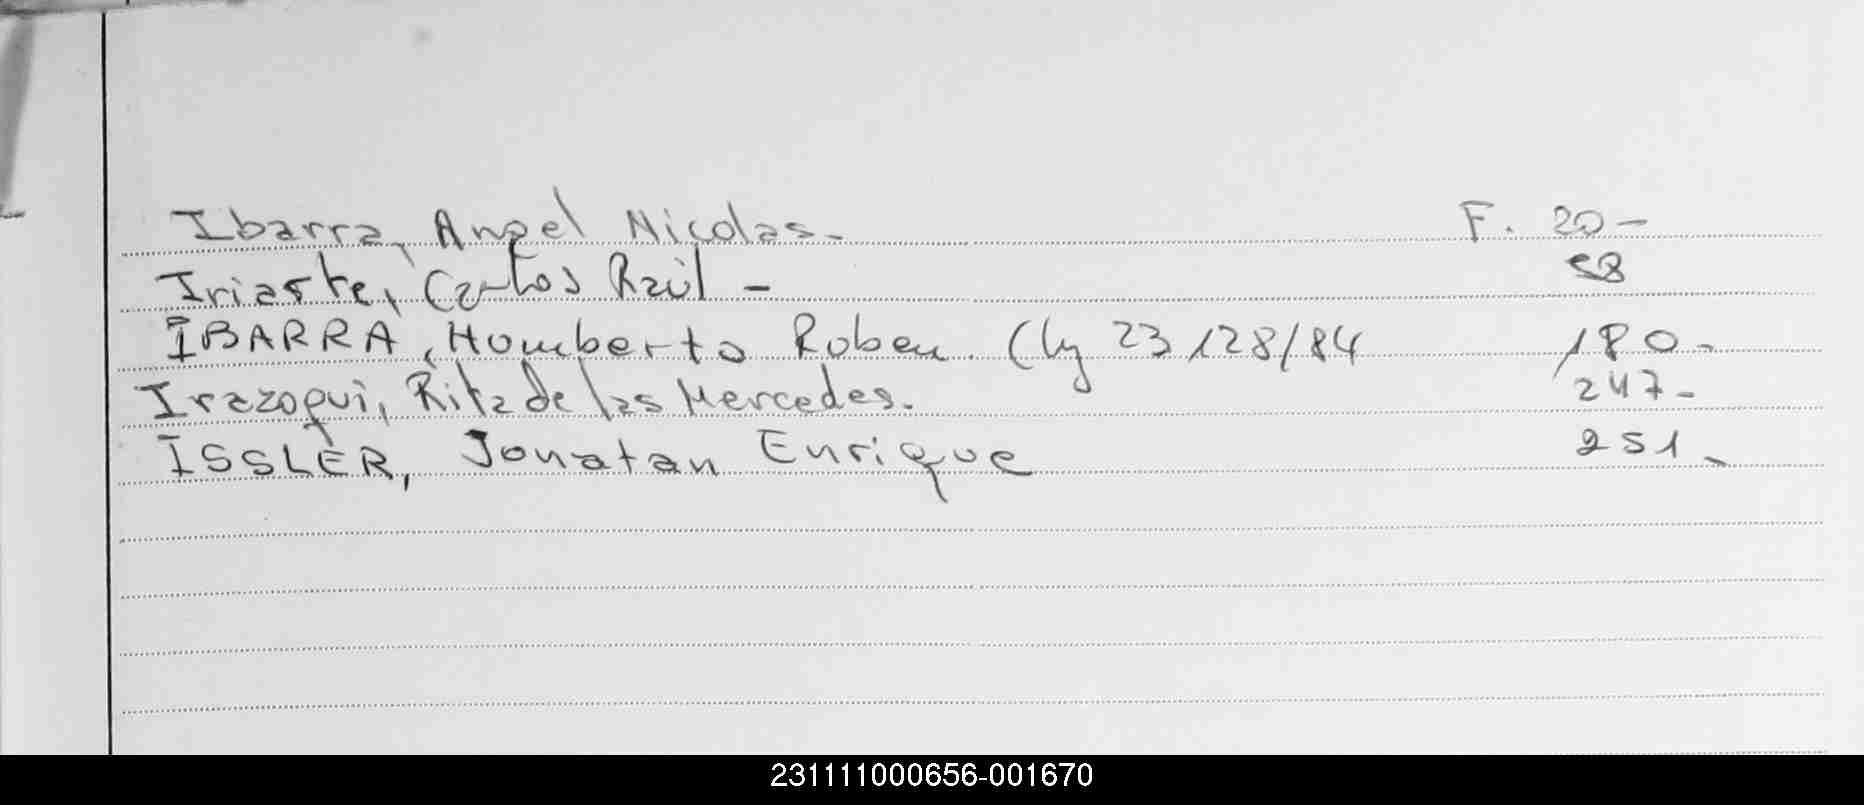 Ibarra, Angel Nicolas. F. 20-
Iriarte, Carlos Raúl - 58
IBARRA, Humberto Ruben. (ley 23128/84 180-
Irazoqui, Rita de las Mercedes. 247-
ISSLER, Jonatan Enrique 251-
231111000656-001670